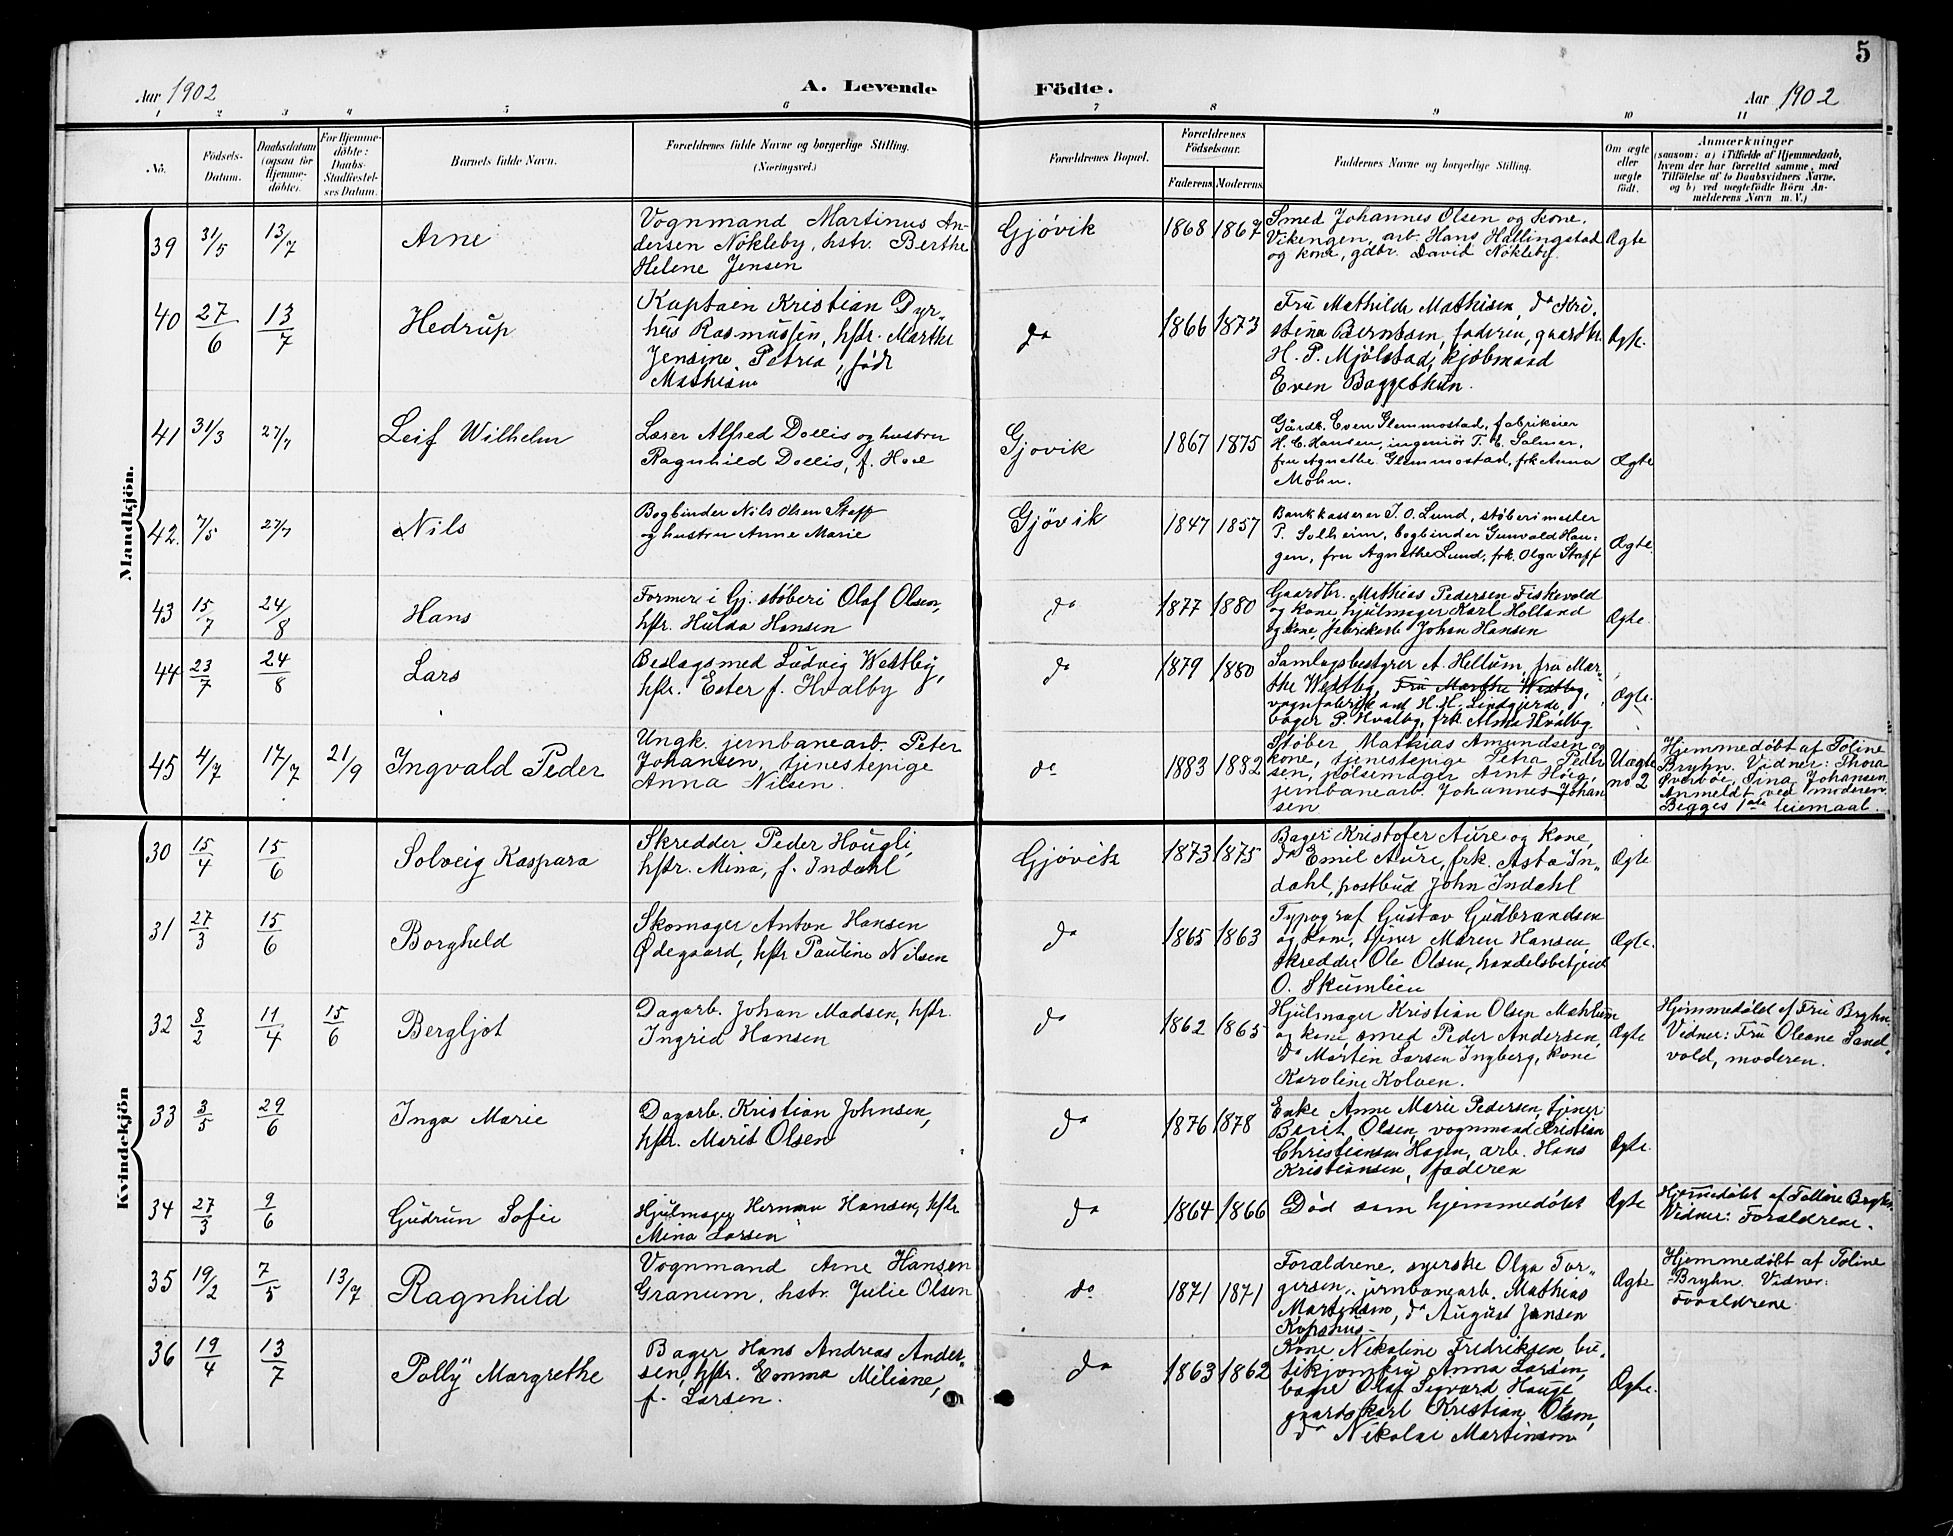 5
Aar 1902
A. Levende Födte.
Aar 1902
1 2 3 4 5 6 7 8 9 10 11
No.
Födsels-Datum.
Daabsdatum (ogsaa for Hjemme-döbte).
For Hjemme-döbte: Daabs-Stadfæstel-ses Datum.
Barnets fulde Navn.
Forældrenes fulde Navne og borgerlige Stilling.
(Næringsvei.)
Forældrenes Bopæl.
Forældrenes Födselsaar.
Faderens Moderens
Faddernes Navne og borgerlige Stilling.
Om ægte eller uægte födt.
Anmærkninger
(saasom: a) i Tilfælde af Hjemmedaab,
hvem der har forrettet samme, med
Tilföielse af to Daabsvidners Navne,
og b) ved uægtefödte Börn An-
melderens Navn m. V.)
Mandkjön.
39 31/5 13/7 Arne
Vognmand Martinus An-
dersen Nökleby, hstr. Berthe
Helene Jensen
Gjøvik 1868 1867
Smed Johannes Olsen og kone,
Vikengen, arb. Hans Hallingstad
og kone, gdbr. David Nökleby.
Ægte
40 27/6 13/7 Hedrup
Kaptein Kristian Dyr-
hus Rasmussen, hstr. Marthe
Jensine Petrea, född
Mathisen
do 1866 1873
Fru Mathilde Mathisen, do Kri-
stina Berntsen, faderen, gaardbr.
H. P. Mjölstad, kjöbmand
Even Baggethun.
Ægte.
41 31/3 27/7 Leif Wilhelm
Lærer Alfred Dollis og hustru
Ragnhild Dollis, f. Hoel
Gjøvik 1867 1875
Gårdb. Even Glemmostad, fabrikeier
H. C. Hansen, ingeniör T. E. Solmer,
fru Agnethe Glemmostad, frk Anna
Mohn.
Ægte
42. 7/5 27/7 Nils
Bogbinder Nils Olsen Staff
og hustru Anne Marie
Gjövik 1847 1857
Bankkasserer J. O. Lund, støberimester
P. Solheim, bogbinder Gunvald Hau-
gen, fru Agnethe Lund, frk. Olga Staff
Ægte.
43 15/7 24/8 Hans
Former i Gj. støberi Olaf Olsen,
hstr. Hulda Hansen
do 1877 1880
Gaardbr. Mathias Pedersen Fiskevold
og kone, hjulmager Karl Holland
og kone, fabrikarb. Johan Hansen
Ægte.
44 23/7 24/8 Lars
Beslagsmed Ludvig Westby,
hstr. Ester f. Hvalby
do 1879 1880
Samlagsbestyrer A. Hellum, fru Mar-
the Westby, Fru Marthe Westby,
vognfabrikant H. H. Lindgjerde,
bager P. Hvalby, frk. Alma Hvalby
Ægte.
45 4/7 17/7 21/9 Ingvald Peder
Ungk. jernbanearb. Peter
Johansen, tjenestepige
Anna Nilsen.
do 1883 1882
Støber Mathias Amundsen og
kone, tjenestepige Petra Peder
sen, pølsemager Arnt Höeg,
jernbanearb. Johannes Johan
sen
Uægte no 2
Hjemmedøbt af Toline
Bryhn. Vidner: Thora
Øverböe, Tina Johansen
Anmeldt ved moderen.
Begges 1ste leiemaal.
Kvindekjön
30 15/4 15/6 Solveig Kaspara
Skredder Peder Hougli,
hstr. Mina, f. Indahl
Gjøvik 1873 1875
Bager Kristofer Aure og kone,
do Emil Aure, frk. Asta In-
dahl, postbud John Indahl
Ægte
31 27/3 15/6 Borghild
Skomager Anton Hansen
Ødegaard, hstr Pauline Nilsen
do 1865 1863
Typograf Gustav Gudbrandsen
og kone, tjener Maren Hansen,
skredder Ole Olsen, handelsbetjent
O. Skumlien
Ægte.
32 8/2 11/4 15/6 Bergljot
Dagarb. Johan Madsen, hstr.
Ingrid Hansen
do 1862 1865
Hjulmager Kristian Olsen Mæhlum
og kone, smed Peder Andersen,
do Martin Larsen Ingberg, kone
Karoline Kolven.
Ægte
Hjemmedøbt af Fru Bryhn
Vidner: Fru Oleane Sand-
vold, moderen.
33 3/5 29/6 Inga Marie
Dagarb. Kristian Johnsen,
hstr. Marit Olsen
do 1876 1878
Enke Anne Marie Pedersen, tjener
Berit Olsen, vognmand Kristian
Christiansen Hagen, arb. Hans
Kristiansen, faderen
Ægte.
34 27/3 9/6 Gudrun Sofie
Hjulmager Herman Hansen, hstr
Mina Larsen
do 1864 1866
Död som hjemmedöbt
Ægte
Hjemmedöbt af Toline Bryhn
Vidner: Forældrene.
35 19/2 7/5 13/7 Ragnhild
Vognmand Arne Hansen
Granum, hstr. Julie Olsen
do 1871 1871
Forældrene, syerske Olga Tor-
gersen, jernbanearb. Mathias
Martinsen, do August Jensen
Kopshus.
Ægte
Hjemmedøbt af Toline
Bryhn. Vidner:
Forældrene
36 19/4 13/7 Polly Margrethe
Bager Hans Andreas Ander-
sen, hstr. Emma Miliane,
f. Larsen.
do 1863 1862
Kone Nikoline Fredriksen, bu-
tikjomfru Anna Larsen,
bager Olaf Sigvard Hauge,
gaardskarl Kristian Olsen,
do Nikolai Martinsen
Ægte.